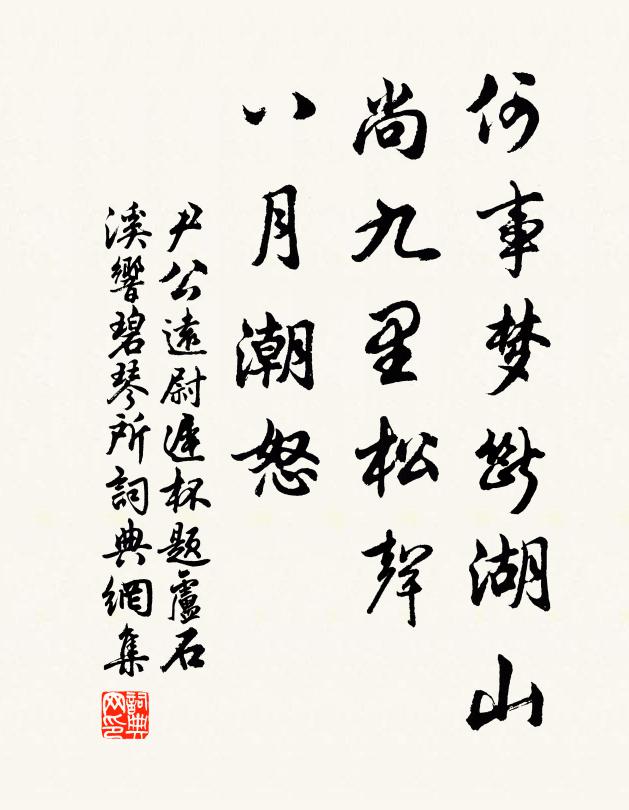 何事梦斷湖山
尚九里松聲
八月潮怒
尹公遠尉遲杯題盧石
溪響碧琴所詞典網集
詞典
网印